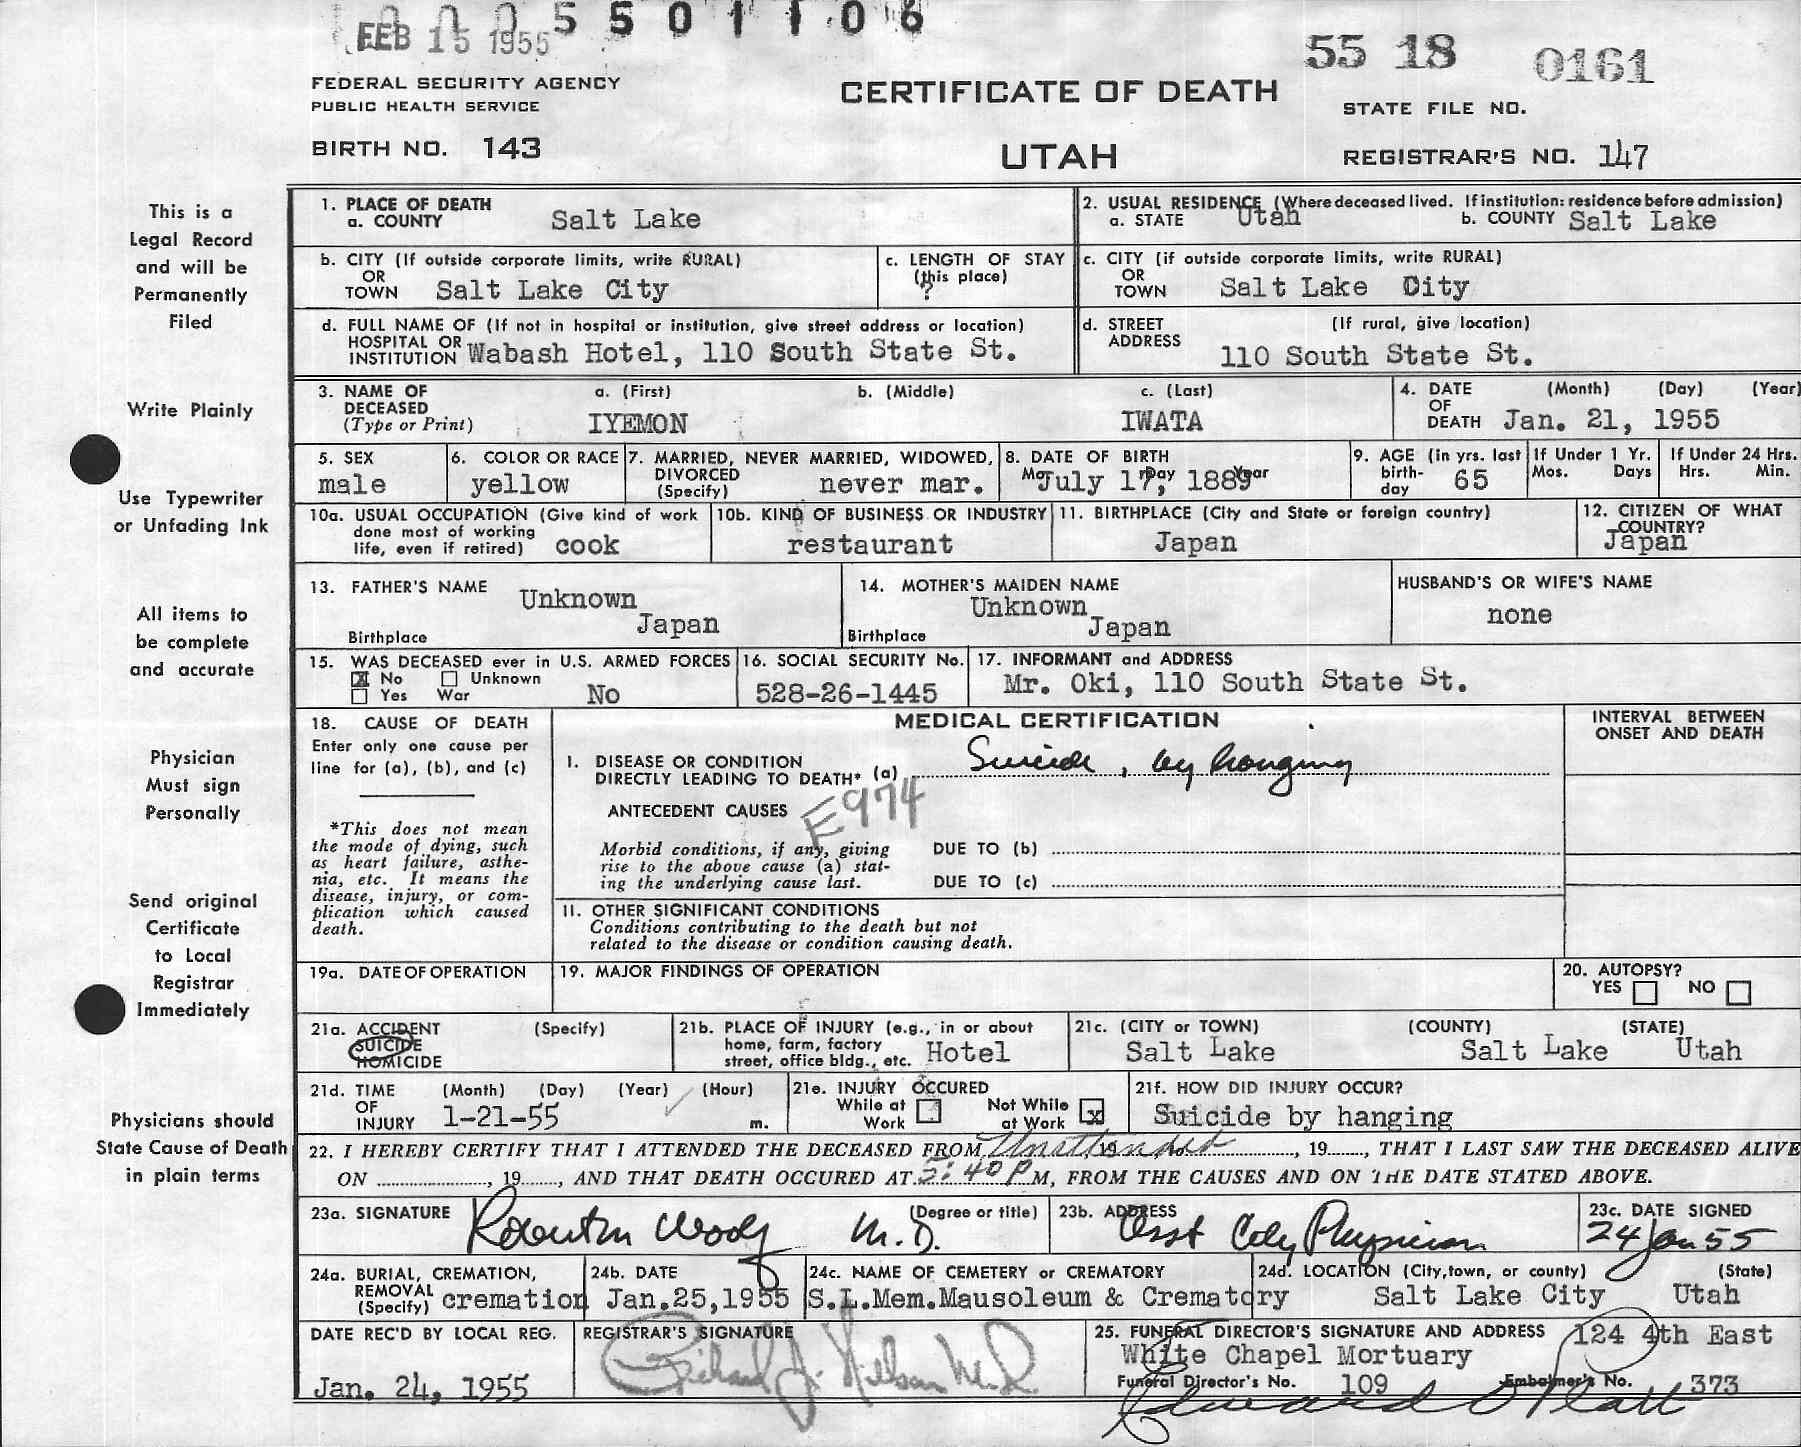 0 0 0 5 5 0 1 1 0 6
FEB 15 1955
55 18 0161
FEDERAL SECURITY AGENCY
PUBLIC HEALTH SERVICE
CERTIFICATE OF DEATH
STATE FILE NO.
BIRTH NO. 143
UTAH
REGISTRAR'S NO. 147
This is a
Legal Record
and will be
Permanently
Filed
Write Plainly
Use Typewriter
or Unfading Ink
All items to
be complete
and accurate
Physician
Must sign
Personally
Send original
Certificate
to Local
Registrar
Immediately
Physicians should
State Cause of Death
in plain terms
1. PLACE OF DEATH
a. COUNTY Salt Lake
2. USUAL RESIDENCE (Where deceased lived. If institution: residence before admission)
a. STATE Utah b. COUNTY Salt Lake
b. CITY (If outside corporate limits, write RURAL)
OR
TOWN Salt Lake City
c. LENGTH OF STAY
(this place)
?
c. CITY (if outside corporate limits, write RURAL)
OR
TOWN Salt Lake City
d. FULL NAME OF (If not in hospital or institution, give street address or location)
HOSPITAL OR
INSTITUTION Wabash Hotel, 110 South State St.
d. STREET (If rural, give location)
ADDRESS
110 South State St.
3. NAME OF a. (First) b. (Middle) c. (Last)
DECEASED
(Type or Print) IYEMON IWATA
4. DATE (Month) (Day) (Year)
OF
DEATH Jan. 21, 1955
5. SEX
male
6. COLOR OR RACE
yellow
7. MARRIED, NEVER MARRIED, WIDOWED,
DIVORCED
(Specify) never mar.
8. DATE OF BIRTH
Mo. Day Year
July 17, 1889
9. AGE (in yrs. last
birth-
day 65
If Under 1 Yr.
Mos. Days
If Under 24 Hrs.
Hrs. Min.
10a. USUAL OCCUPATION (Give kind of work
done most of working
life, even if retired) cook
10b. KIND OF BUSINESS OR INDUSTRY
restaurant
11. BIRTHPLACE (City and State or foreign country)
Japan
12. CITIZEN OF WHAT
COUNTRY?
Japan
13. FATHER'S NAME Unknown
Birthplace Japan
14. MOTHER'S MAIDEN NAME
Unknown
Birthplace Japan
HUSBAND'S OR WIFE'S NAME
none
15. WAS DECEASED ever in U.S. ARMED FORCES
x No Unknown
Yes War No
16. SOCIAL SECURITY No.
528-26-1445
17. INFORMANT and ADDRESS
Mr. Oki, 110 South State St.
18. CAUSE OF DEATH
Enter only one cause per
line for (a), (b), and (c)
*This does not mean
the mode of dying, such
as heart failure, asthe-
nia, etc. It means the
disease, injury, or com-
plication which caused
death.
MEDICAL CERTIFICATION
I. DISEASE OR CONDITION
DIRECTLY LEADING TO DEATH* (a) Suicide, by hanging
ANTECEDENT CAUSES E974
Morbid conditions, if any, giving
rise to the above cause (a) stat-
ing the underlying cause last.
DUE TO (b)
DUE TO (c)
II. OTHER SIGNIFICANT CONDITIONS
Conditions contributing to the death but not
related to the disease or condition causing death.
INTERVAL BETWEEN
ONSET AND DEATH
19a. DATE OF OPERATION
19. MAJOR FINDINGS OF OPERATION
20. AUTOPSY?
YES NO
21a. ACCIDENT (Specify)
SUICIDE
HOMICIDE
21b. PLACE OF INJURY (e.g., in or about
home, farm, factory
street, office bldg., etc. Hotel
21c. (CITY or TOWN) (COUNTY) (STATE)
Salt Lake Salt Lake Utah
21d. TIME (Month) (Day) (Year) (Hour)
OF
INJURY 1-21-55 m.
21e. INJURY OCCURED
While at Work
Not While at Work x
21f. HOW DID INJURY OCCUR?
Suicide by hanging
22. I HEREBY CERTIFY THAT I ATTENDED THE DECEASED FROM Unattended 19, 19, THAT I LAST SAW THE DECEASED ALIVE
ON , 19, AND THAT DEATH OCCURED AT 5:40 P M, FROM THE CAUSES AND ON THE DATE STATED ABOVE.
23a. SIGNATURE (Degree or title)
Woody M.D.
23b. ADDRESS
Asst City Physician
23c. DATE SIGNED
24 Jan 55
24a. BURIAL, CREMATION,
REMOVAL
(Specify) cremation
24b. DATE
Jan.25,1955
24c. NAME OF CEMETERY or CREMATORY
S.L.Mem.Mausoleum & Crematory
24d. LOCATION (City,town, or county) (State)
Salt Lake City Utah
DATE REC'D BY LOCAL REG.
Jan. 24, 1955
REGISTRAR'S SIGNATURE
Richard J. Nelson M.D.
25. FUNERAL DIRECTOR'S SIGNATURE AND ADDRESS 124 4th East
White Chapel Mortuary
Funeral Director's No. 109 Embalmer's No. 373
Edward Platt